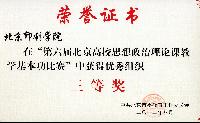 荣誉证书
北京印刷学院
在“第六届北京高校思想政治理论课教
学基本功比赛”中获得优秀组织
三等奖